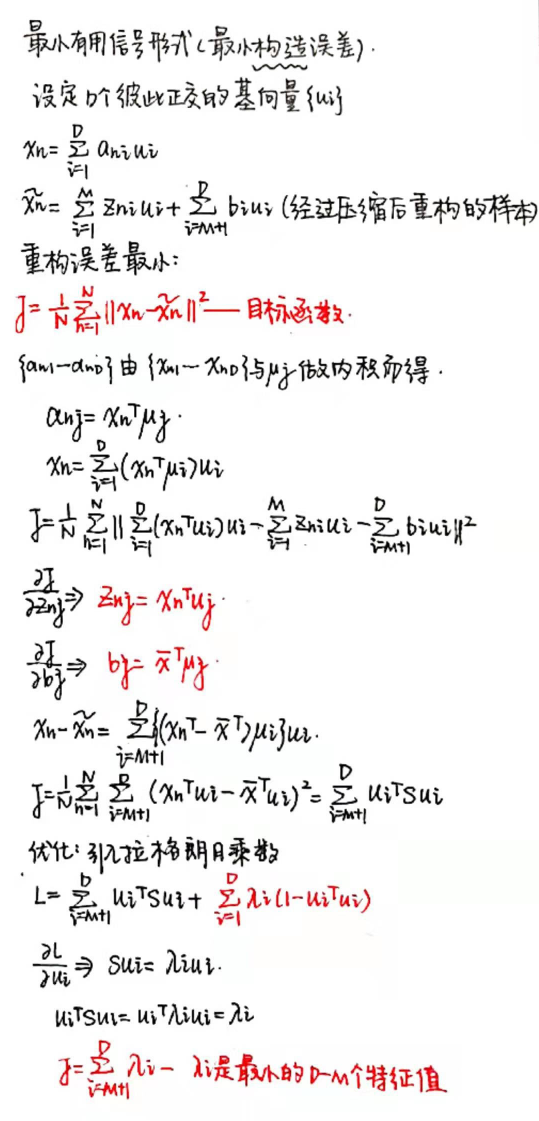 最小有用信号形式(最小构造误差).
设定D个彼此正交的基向量{ui}
xn=∑_{i=1}^{D} aniui
x̃n=∑_{i=1}^{M} zniui+∑_{i=M+1}^{D} biui (经过压缩后重构的样本)
重构误差最小:
J=1/N ∑_{n=1}^{N} ||xn-x̃n||² — 目标函数.
{an1-anD}由{xn1-xnD}与μj做内积而得.
anj=xnᵀμj.
xn=∑_{i=1}^{D}(xnᵀμi)ui
J=1/N ∑_{n=1}^{N} ||∑_{i=1}^{D}(xnᵀui)ui-∑_{i=1}^{M} zniui-∑_{i=M+1}^{D} biui||²
∂J/∂znj ⇒ znj=xnᵀuj.
∂J/∂bj ⇒ bj=x̄ᵀμj.
xn-x̃n=∑_{i=M+1}^{D}{(xnᵀ-x̄ᵀ)μi}ui.
J=1/N ∑_{n=1}^{N} ∑_{i=M+1}^{D} (xnᵀui-x̄ᵀui)²=∑_{i=M+1}^{D} uiᵀSui
优化:引入拉格朗日乘数
L=∑_{i=M+1}^{D} uiᵀSui+∑_{i=1}^{D} λi(1-uiᵀui)
∂L/∂ui ⇒ Sui=λiui.
uiᵀSui=uiᵀλiui=λi
J=∑_{i=M+1}^{D} λi - λi是最小的D-M个特征值